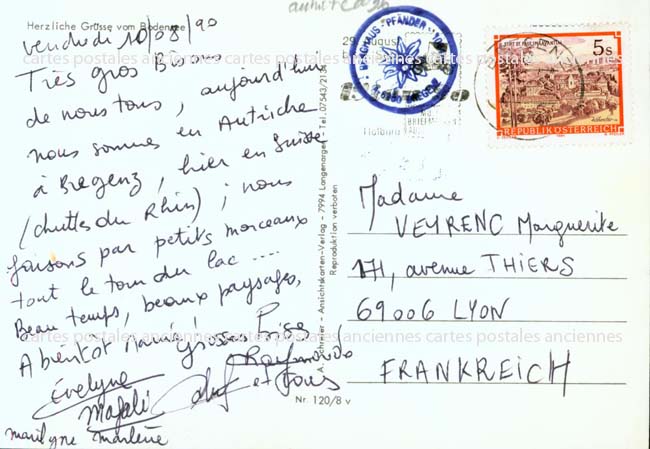 autriche
Herzliche Grüsse vom Bodensee
vendredi 10/08/90
Très gros Bisous
de nous tous, aujourd'hui
nous sommes en Autriche
à Bregenz, hier en Suisse
(chuttes du Rhin) ; nous
faisons par petits morceaux
tout le tour du lac ....
Beau temps, beaux paysages,
A bientôt Mamie, Grosses Bises
Evelyne
Magali
et tous
marilyne marlène
A. Schreier - Ansichtskarten-Verlag - 7994 Langenargen - Tel. 07543/2134
Reproduktion verboten
Nr. 120/8 v
BERGHAUS PFÄNDER
BREGENZ
29. August
5s
REPUBLIK ÖSTERREICH
Madame
VEYRENC Marguerite
171, avenue THIERS
69006 LYON
FRANKREICH
cartes postales anciennes cartes postales anciennes cartes postales anciennes
cartes postales anciennes cartes postales anciennes cartes postales anciennes